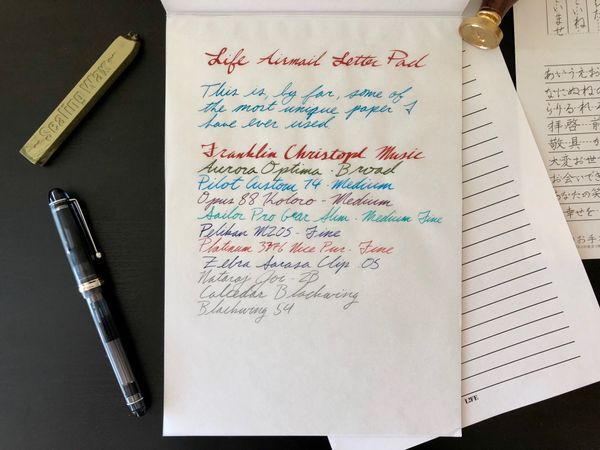 Sealing Wax
Life Airmail Letter Pad
This is, by far, some of
the most unique paper I
have ever used
Franklin Christoph Music
Aurora Optima · Broad
Pilot Custom 74 · Medium
Opus 88 Koloro - Medium
Sailor Pro Gear Slim · Medium Fine
Pelikan M205 - Fine
Platinum 3776 Nice Pur · Fine
Zebra Sarasa Clip 05
Nataraj Joi · 2B
Caltedar Blackwing
Blackwing 54
LIFE
いいね
いませ
あいうえお
なにぬねの
らりるれろ
拝啓 前
敬具
大変お世
お会いでき
あなたの笑
幸せを
お手